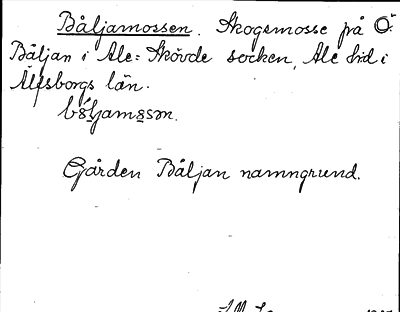 Båljamossen. Skogsmosse på Ö.
Båljan i Ale-Skövde socken, Ale hd i
Älfsborgs län.
Gården Båljan namngrund.